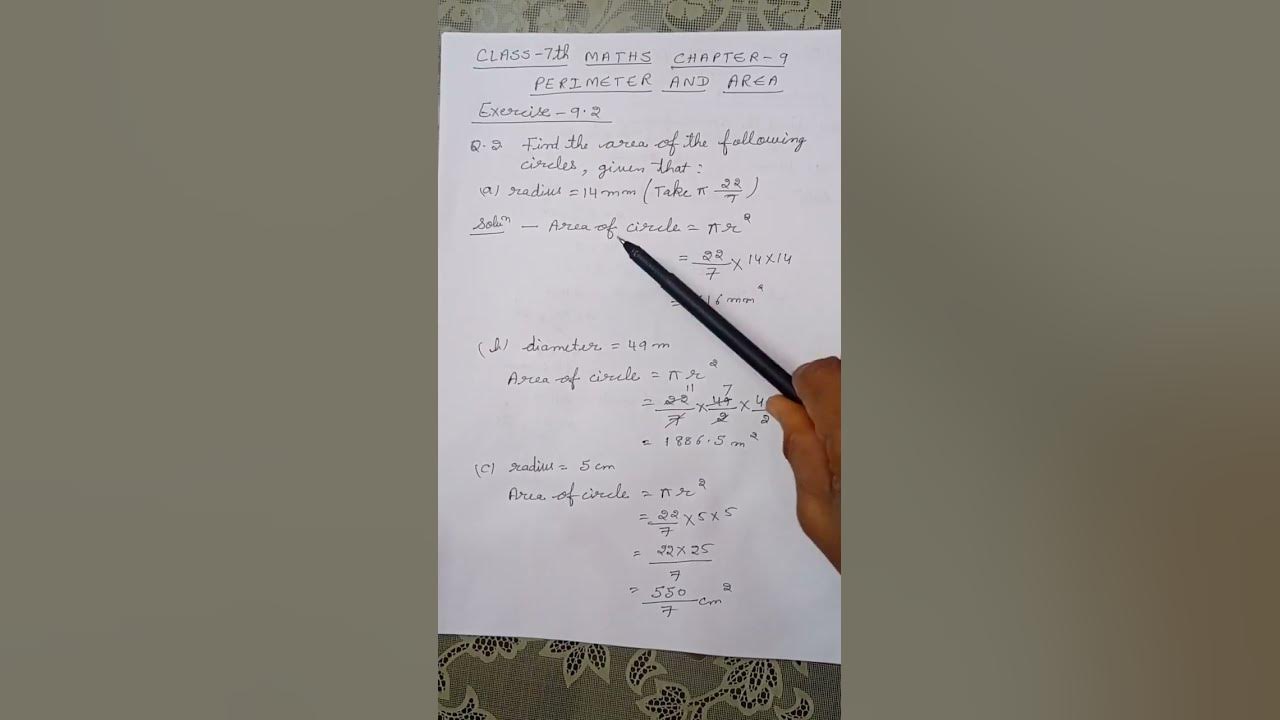 CLASS-7th MATHS CHAPTER-9
PERIMETER AND AREA
Exercise-9.2
Q.2 Find the area of the following
circles, given that:
(a) radius = 14 mm (Take π 22/7)
Soluⁿ — Area of circle = πr²
= 22/7 × 14 × 14
= 16 mm²
(b) diameter = 49 m
Area of circle = πr²
11 7
= 22/7 × 49/2 × 4/2
= 1886.5 m²
(c) radius = 5 cm
Area of circle = πr²
= 22/7 × 5 × 5
= 22 × 25/7
= 550/7 cm²